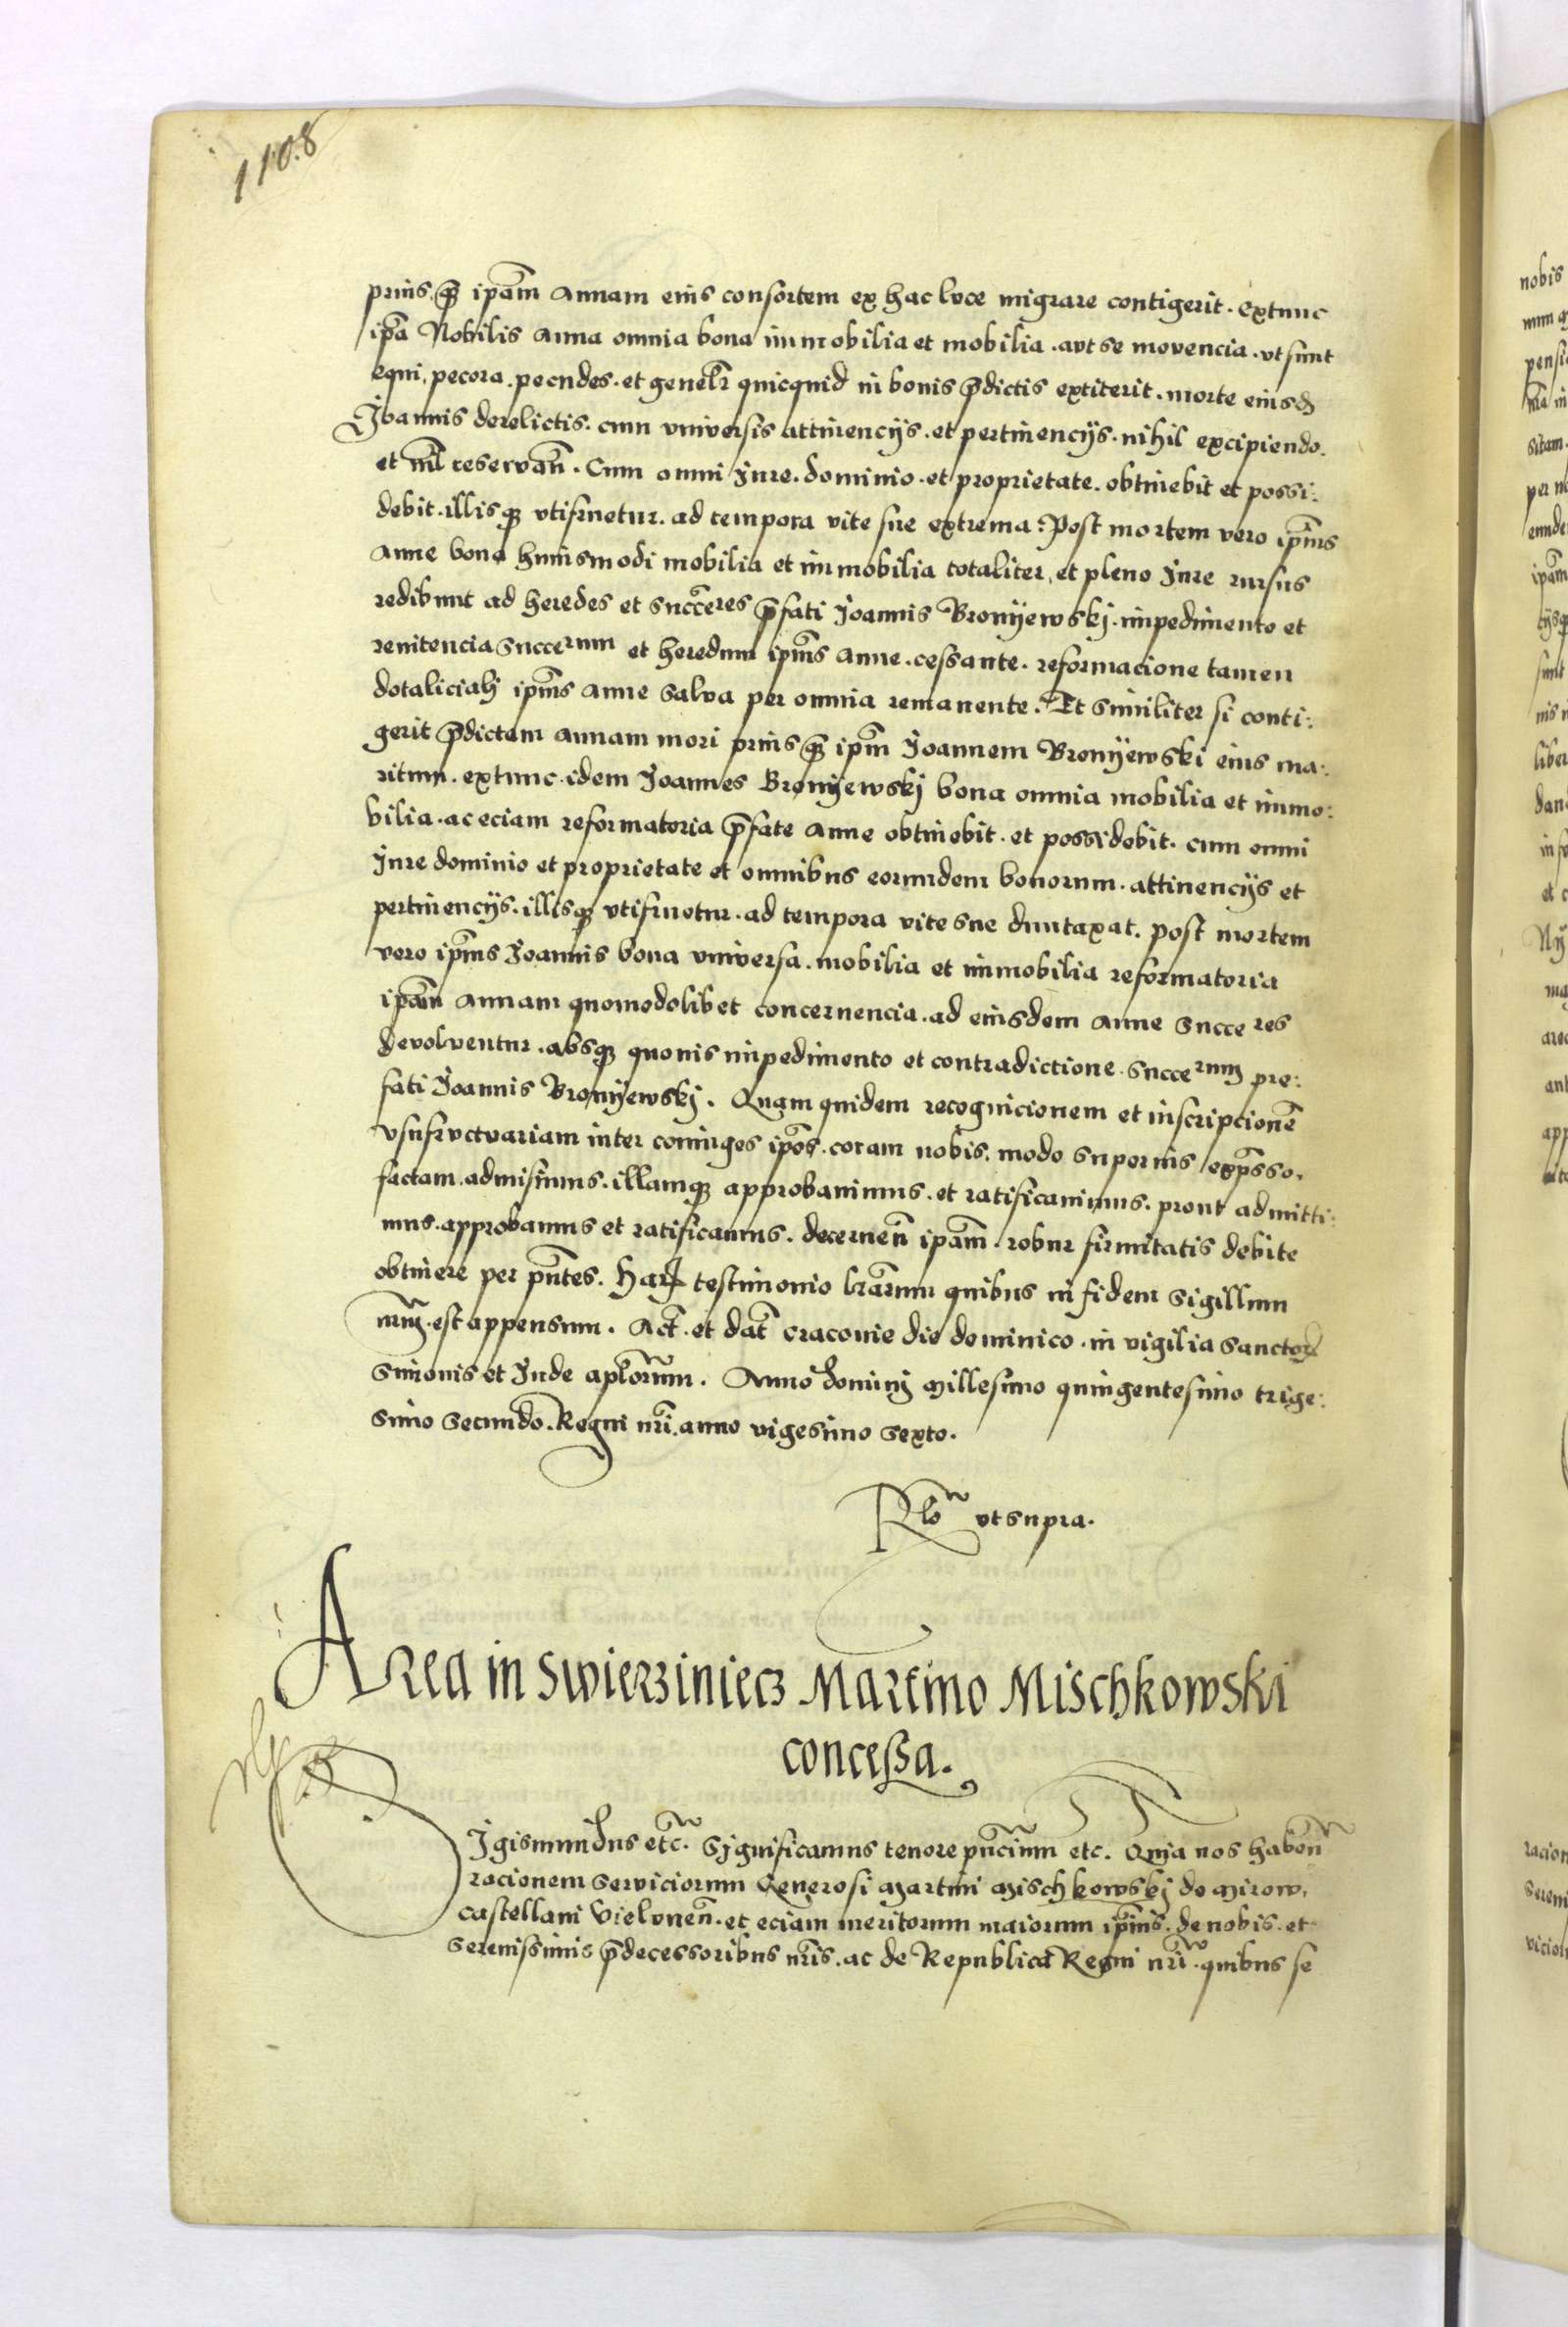 1108
prius, q̃ ipãm Annam eius consortem ex hac luce migrare contigerit. extunc
ipã Nobilis Anna omnia bona immobilia et mobilia. aut se movencia. ut sunt
equi, pecora. pecudes. et genelr̃ quicquid in bonis p̃dictis extiterit. morte eiusd̃
Joannis derelictis. cum universis attinencijs. et pertinencijs. nihil excipiendo.
et nil̃ reservan̄. Cum omni Jure. dominio. et proprietate. obtinebit et possi:
debit. illisq̃ utifruetur. ad tempora vite sue extrema: Post mortem vero ip̄ius
Anne bona huiusmodi mobilia et immobilia totaliter, et pleno Jure rursus
redibunt ad heredes et succ̄eres p̃fati Joannis Bronijewskj. impedimento et
renitencia succerum et heredum ip̄ius Anne. cessante. reformacione tamen
dotaliciali ip̄ius Anne salva per omnia remanente. Et similiter si conti:
gerit p̃dictam Annam mori prius q̃ ip̄m Joannem Bronijewski eius ma:
ritum. extunc. idem Joannes Bronijewskj bona omnia mobilia et immo:
bilia. ac eciam reformatoria p̃fate Anne obtinebit. et possidebit. cum omni
Jure dominio et proprietate et omnibus eorundem bonorum. attinencijs et
pertinencijs. illisq̃ utifruetur. ad tempora vite sue duntaxat. post mortem
vero ip̄ius Joannis bona universa. mobilia et immobilia reformatoria
ipãm Annam quomodolibet concernencia. ad eiusdem Anne succeres
devolventur. absq̃ quovis impedimento et contradictione. succerum pre:
fati Joannis Bronijewskj. Quam quidem recognicionem et inscripcionē
usufructuariam inter coniuges ip̄os. coram nobis. modo superius exp̄sso.
factam. admisimus. illamq̃ approbavimus. et ratificavimus. prout admitti:
mus. approbamus et ratificamus. decernen̄ ipãm. robur firmitatis debite
obtinere per pn̄tes. Harꝝ testimonio lr̄arum quibus in fidem sigillum
nr̄m. est appensum. Act̄. et dat̄ Cracovie die dominico. in vigilia sanctorꝝ
Simonis et Jude apl̄orum. Anno domini Millesimo quingentesimo trige:
simo secundo. Regni nr̄i. anno vigesimo sexto.
Rlõ ut supra.
Area in Swierziniecz Martino Mischkowski
conceßa.
Sigismundus etc̄. Significamus tenore pn̄cium etc. Quia nos haben̄
racionem serviciorum Generosi Martini Mischkowskj de Mirow,
castellani Vielunen̄. et eciam meritorum maiorum ip̄ius. de nobis. et
serenissimis p̃decessoribus nr̄is. ac de Republica Regni nr̄i. quibus se